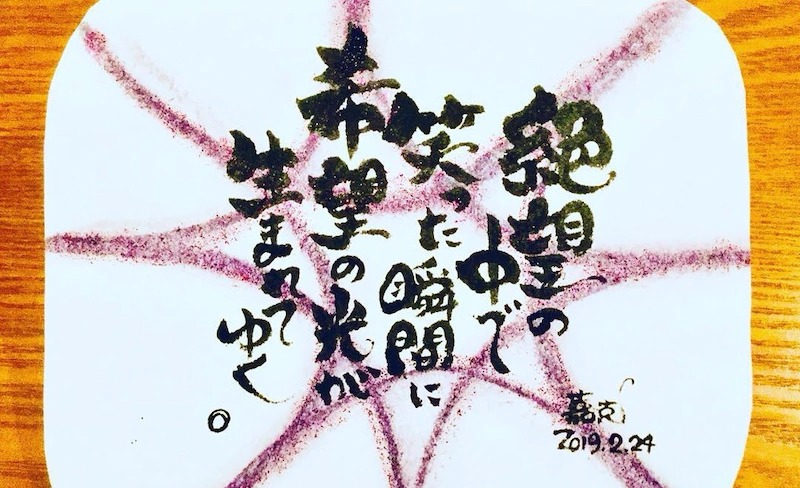 絶望の
中で
笑った
瞬間に
希望の光が
生まれて
ゆく。
嘉克
2019.2.24